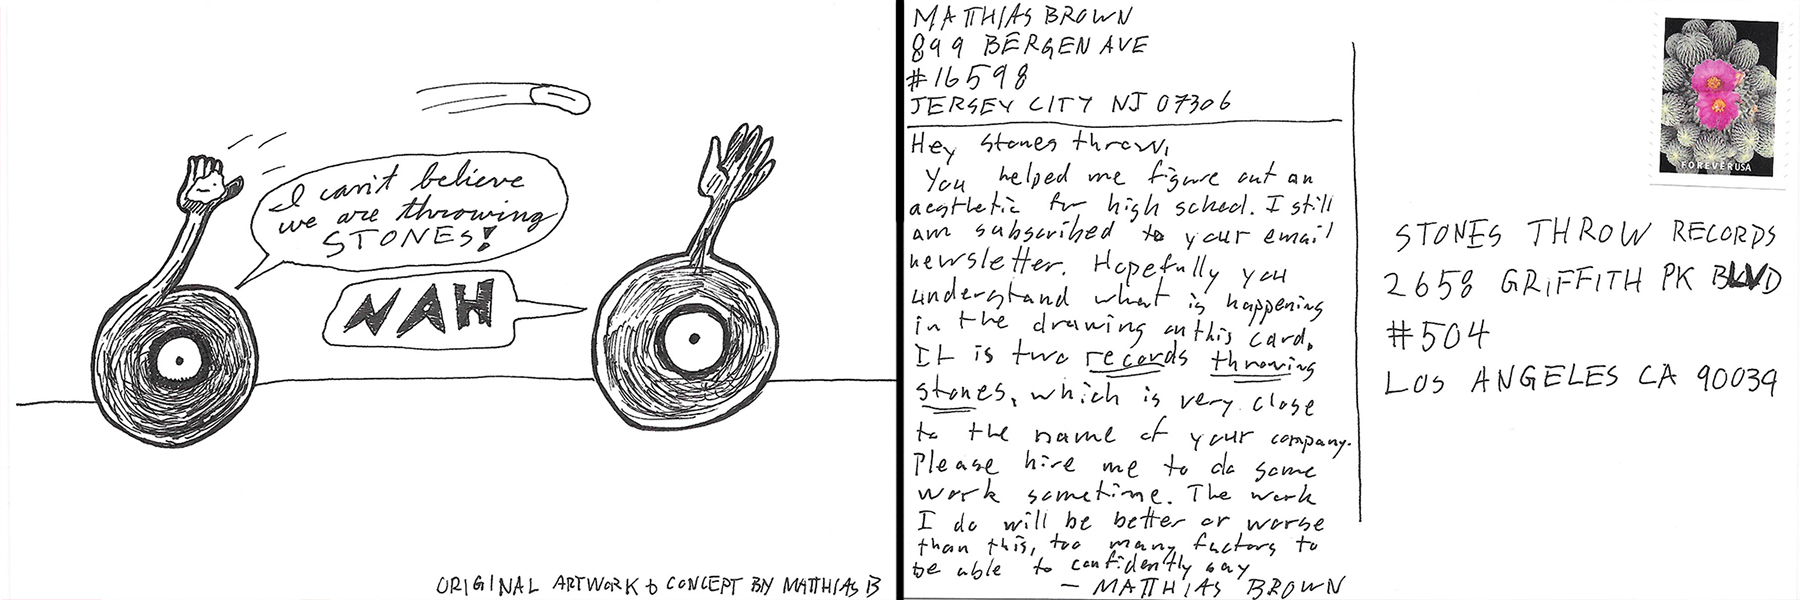 I can't believe
we are throwing
STONES!
NAH
ORIGINAL ARTWORK & CONCEPT BY MATTHIAS B
MATTHIAS BROWN
899 BERGEN AVE
#16598
JERSEY CITY NJ 07306
Hey Stones throw,
You helped me figure out an
aesthetic for high school. I still
am subscribed to your email
newsletter. Hopefully you
understand what is happening
in the drawing on this card.
It is two records throwing
stones, which is very close
to the name of your company.
Please hire me to do some
work sometime. The work
I do will be better or worse
than this, too many factors to
be able to confidently say
— MATTHIAS BROWN
FOREVER USA
STONES THROW RECORDS
2658 GRIFFITH PK BLVD
#504
LOS ANGELES CA 90039